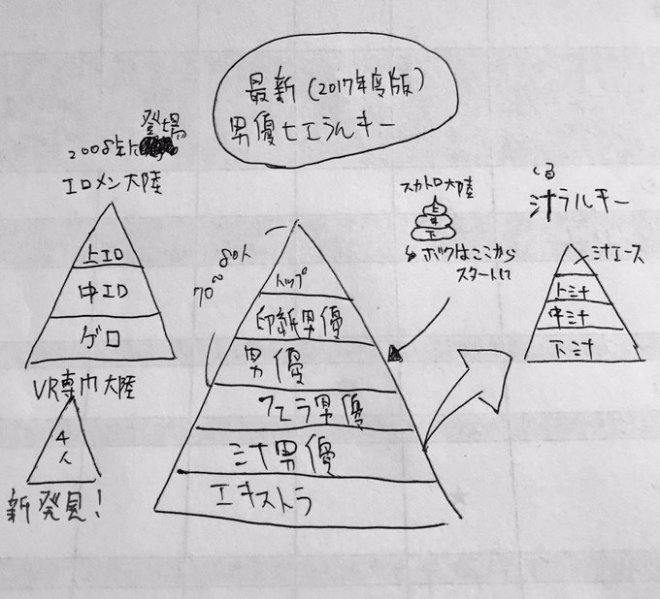 最新(2017年度版)
男優ヒエラルキー
2008年に登場
エロメン大陸
上エロ
中エロ
ゲロ
VR専門大陸
4人
新発見!
70~80人
トップ
男優
フェラ男優
汁男優
エキストラ
スカトロ大陸
上
中
下
ボクはここから
スタートして
汁ラルキー
汁エース
上汁
中汁
下汁